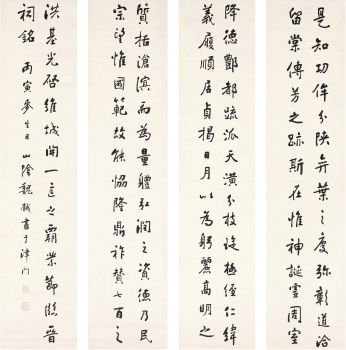 是知功侔分陝弈葉之慶弥彰道洽
留棠傳芳之跡斯在惟神誕靈周室
降德酆都疏派天潢分枝琁極經仁緯
義履順居貞揭日月以為躬麗高明之
質括滄溟而為量體弘潤之資德乃民
宗望惟國範故能協隆鼎祚贊七百之
洪基光啓維城開一匡之霸業節臨晉
祠銘 丙寅麥生日山陰魏戫書于津門